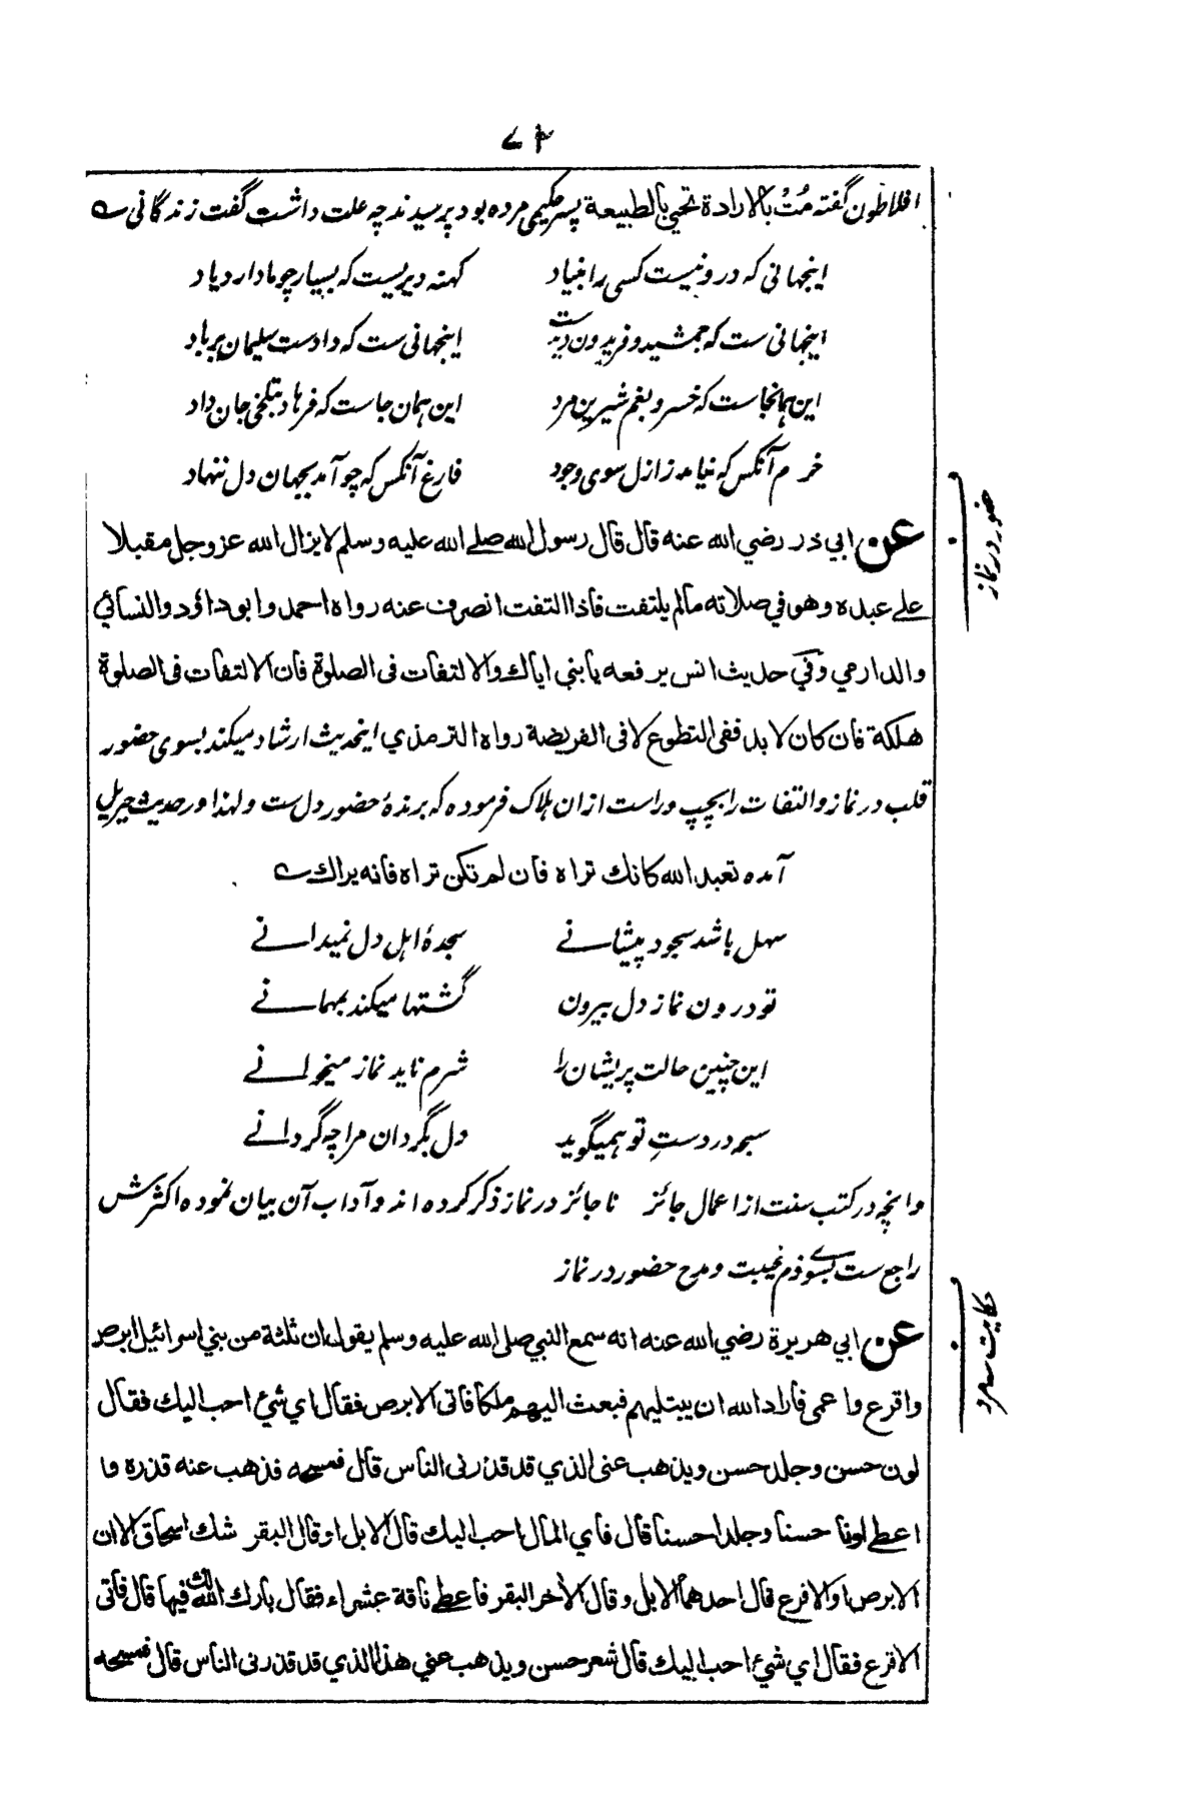 ۷۴
افلاطون گفته مُتْ بالارادة تحيي بالطبيعة پسر حکیمی مرده بود پرسیدند چه علت داشت گفت زندگانی ے
اینجهانی که درو نیست کسی را بنیاد کهنه دیریست که بسیار چو ما دارد یاد
اینجهانی ست که جمشید و فریدون دیدست اینجهانی ست که دادست سلیمان برباد
این همانجاست که خسرو بغم شیرین مرد این همان جاست که فرهاد بتلخی جان داد
خرم آنکس که نیامد ز ازل سوی وجود فارغ آنکس که چو آمد بجهان دل ننهاد
عن ابي ذر رضي الله عنه قال قال رسول الله صلے الله عليه وسلم لا يزال الله عز وجل مقبلا
علے عبده وهو في صلاته مالم يلتفت فاذا التفت انصرف عنه رواه احمد وابو داؤد والنسائي
والدارمي وفي حديث انس يرفعه يا بني اياك والالتفات فى الصلوة فان الالتفات فى الصلوة
هلكة فان كان لا بد ففى التطوع لا فى الفريضة رواه الترمذي اینحدیث ارشاد میکند بسوی حضور
قلب در نماز و التفات را بچپ و راست ازان ہلاک فرموده که برندۂ حضور دل ست و لہذا در حدیث جبریل
آمده تعبد الله كانك تراه فان لم تكن تراه فانه يراك ے
سهل باشد سجود پیشانے سجدۂ اہل دل نمیدانے
تو درون نماز دل بیرون گشتها میکند بمهمانے
این چنین حالت پریشان را شرم ناید نماز میخوانے
سبحه در دستِ تو همیگوید دل بگردان مرا چه گردانے
وانچه در کتب سنت از اعمال جائز نا جائز در نماز ذکر کرده اند و آداب آن بیان نموده اکثرش
راجع ست بسوے ذم غیبت و مدح حضور در نماز
عن ابي هريرة رضي الله عنه انه سمع النبي صلى الله عليه وسلم يقول ان ثلثة من بني اسرائيل ابرص
واقرع واعمى فاراد الله ان يبتليهم فبعث اليهم ملكا فاتى الابرص فقال اي شئ احب اليك فقال
لون حسن وجلد حسن ويذهب عنى الذي قد قذرنى الناس قال فمسحه فذهب عنه قذره وا
اعطي لونا حسنا وجلدا حسنا قال فاي المال احب اليك قال الابل او قال البقر شك اسحاق الا ان
الابرص او الاقرع قال احدهما الابل وقال الأخر البقر فاعطي ناقة عشراء فقال بارك الله لك فيها قال فاتى
الاقرع فقال اي شئ احب اليك قال شعر حسن ويذهب عني هذا الذي قد قذرنى الناس قال فمسحه
حضور در نماز
حکایت سه مرد